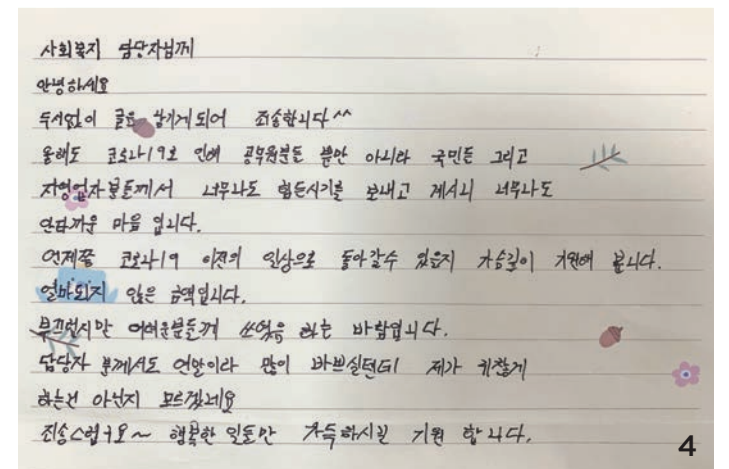 사회복지 담당자님께
안녕하세요
두서없이 글을 남기게되어 죄송합니다^^
올해도 코로나19로 인해 공무원분들 뿐만 아니라 국민들 그리고
자영업자분들께서 너무나도 힘든시기를 보내고 계셔서 너무나도
안타까운 마음 입니다.
언제쯤 코로나19 이전의 일상으로 돌아갈수 있을지 가슴깊이 기원해 봅니다.
얼마되지 않은 금액입니다.
부끄럽지만 어려운분들께 쓰였음 하는 바람입니다.
담당자 분께서도 연말이라 많이 바쁘실텐데 제가 귀찮게
하는건 아닌지 모르겠네요
죄송스럽구요~ 행복한 일들만 가득하시길 기원 합니다.
4